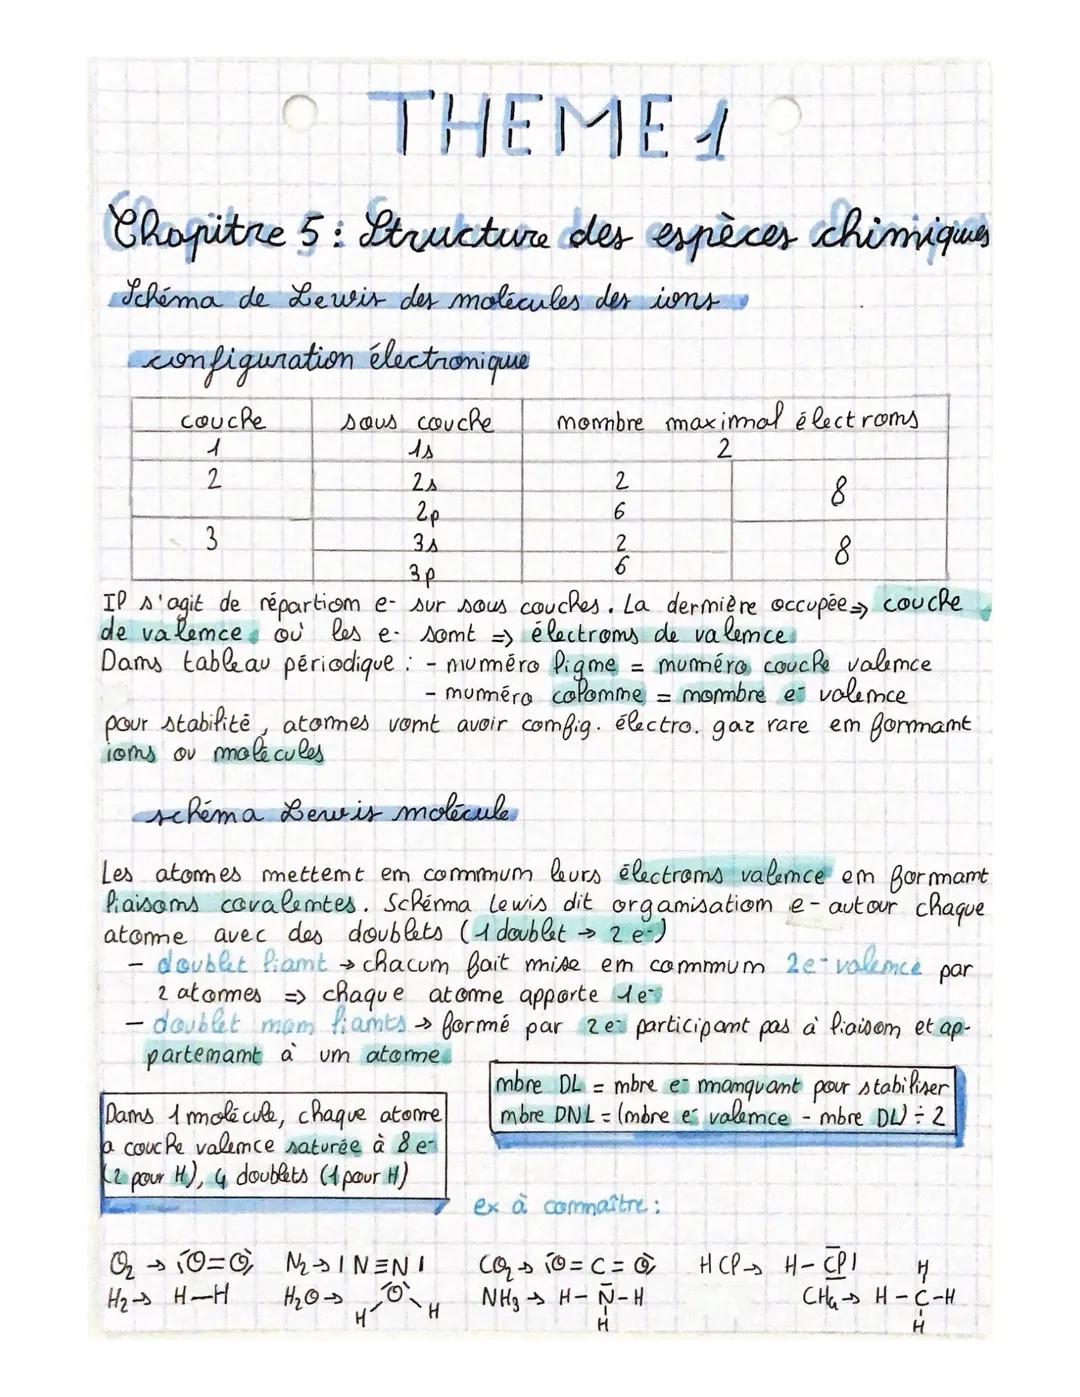 THEME 1
Chapitre 5 : Structure des espèces chimiques
Schéma de Lewis des molécules des ions
configuration électronique
couche sous couche nombre maximal électrons
1 1s 2
2 2s 2 8
2p 6
3 3s 2 8
3p 6
Il s'agit de répartion e- sur sous couches. La dernière occupée => couche
de valence où les e- sont => électrons de valence
Dans tableau périodique : - numéro ligne = numéro couche valence
- numéro colonne = nombre e- valence
pour stabilité, atomes vont avoir config. électro. gaz rare en formant
ions ou molécules
schéma Lewis molécule
Les atomes mettent en commum leurs électrons valence en formant
liaisons covalentes. Schéma Lewis dit organisation e- autour chaque
atome avec des doublets (1 doublet → 2 e-)
- doublet liant → chacun fait mise en commum 2e- valence par
2 atomes => chaque atome apporte 1e-
- doublet non liants → formé par 2e- participant pas à liaison et ap-
partenant à un atome
nbre DL = nbre e- manquant pour stabiliser
nbre DNL = (nbre e- valence - nbre DL) ÷ 2
Dans 1 molécule, chaque atome
a couche valence saturée à 8 e-
(2 pour H), 4 doublets (1 pour H)
ex à connaître :
O₂ → O=O N₂ → |N≡N| CO₂ → O=C=O HCl → H-Cl| H
H₂ → H—H H₂O → O NH₃ → H-N-H CH₄ → H-C-H
H H H H